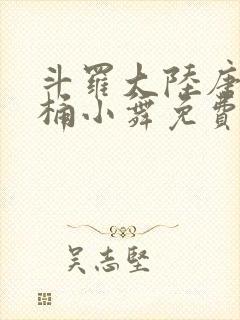 斗羅大陸唐
桶小舞免費
吴志堅